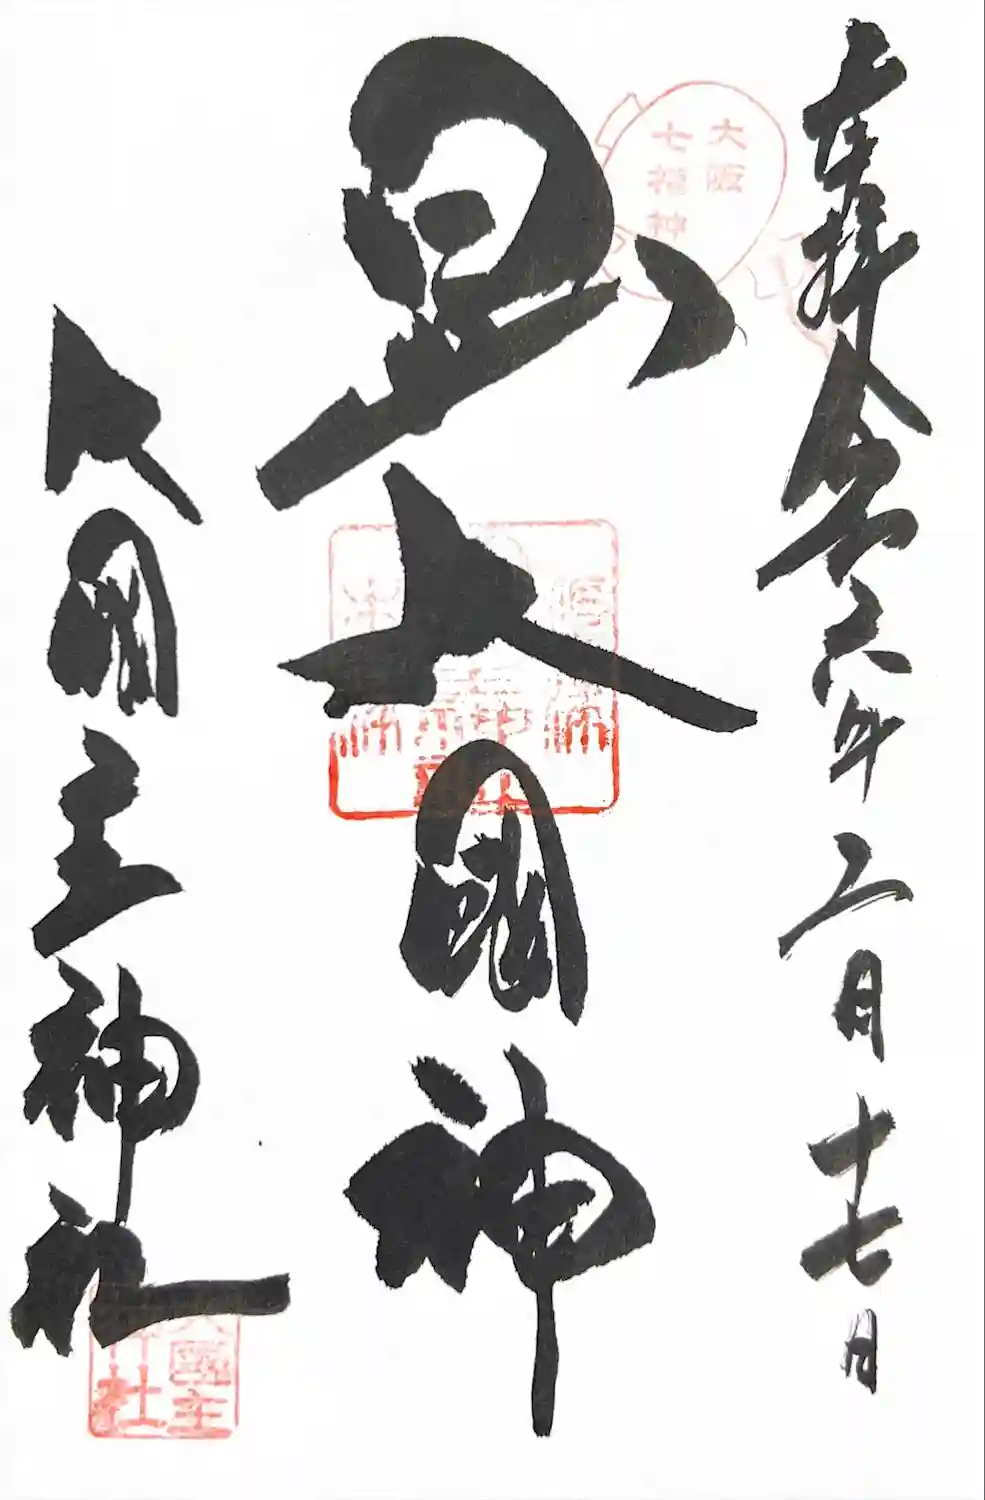 奉拝 令和六年二月十七日
大阪
七福神
大国神
大国主神社
大國主
神社